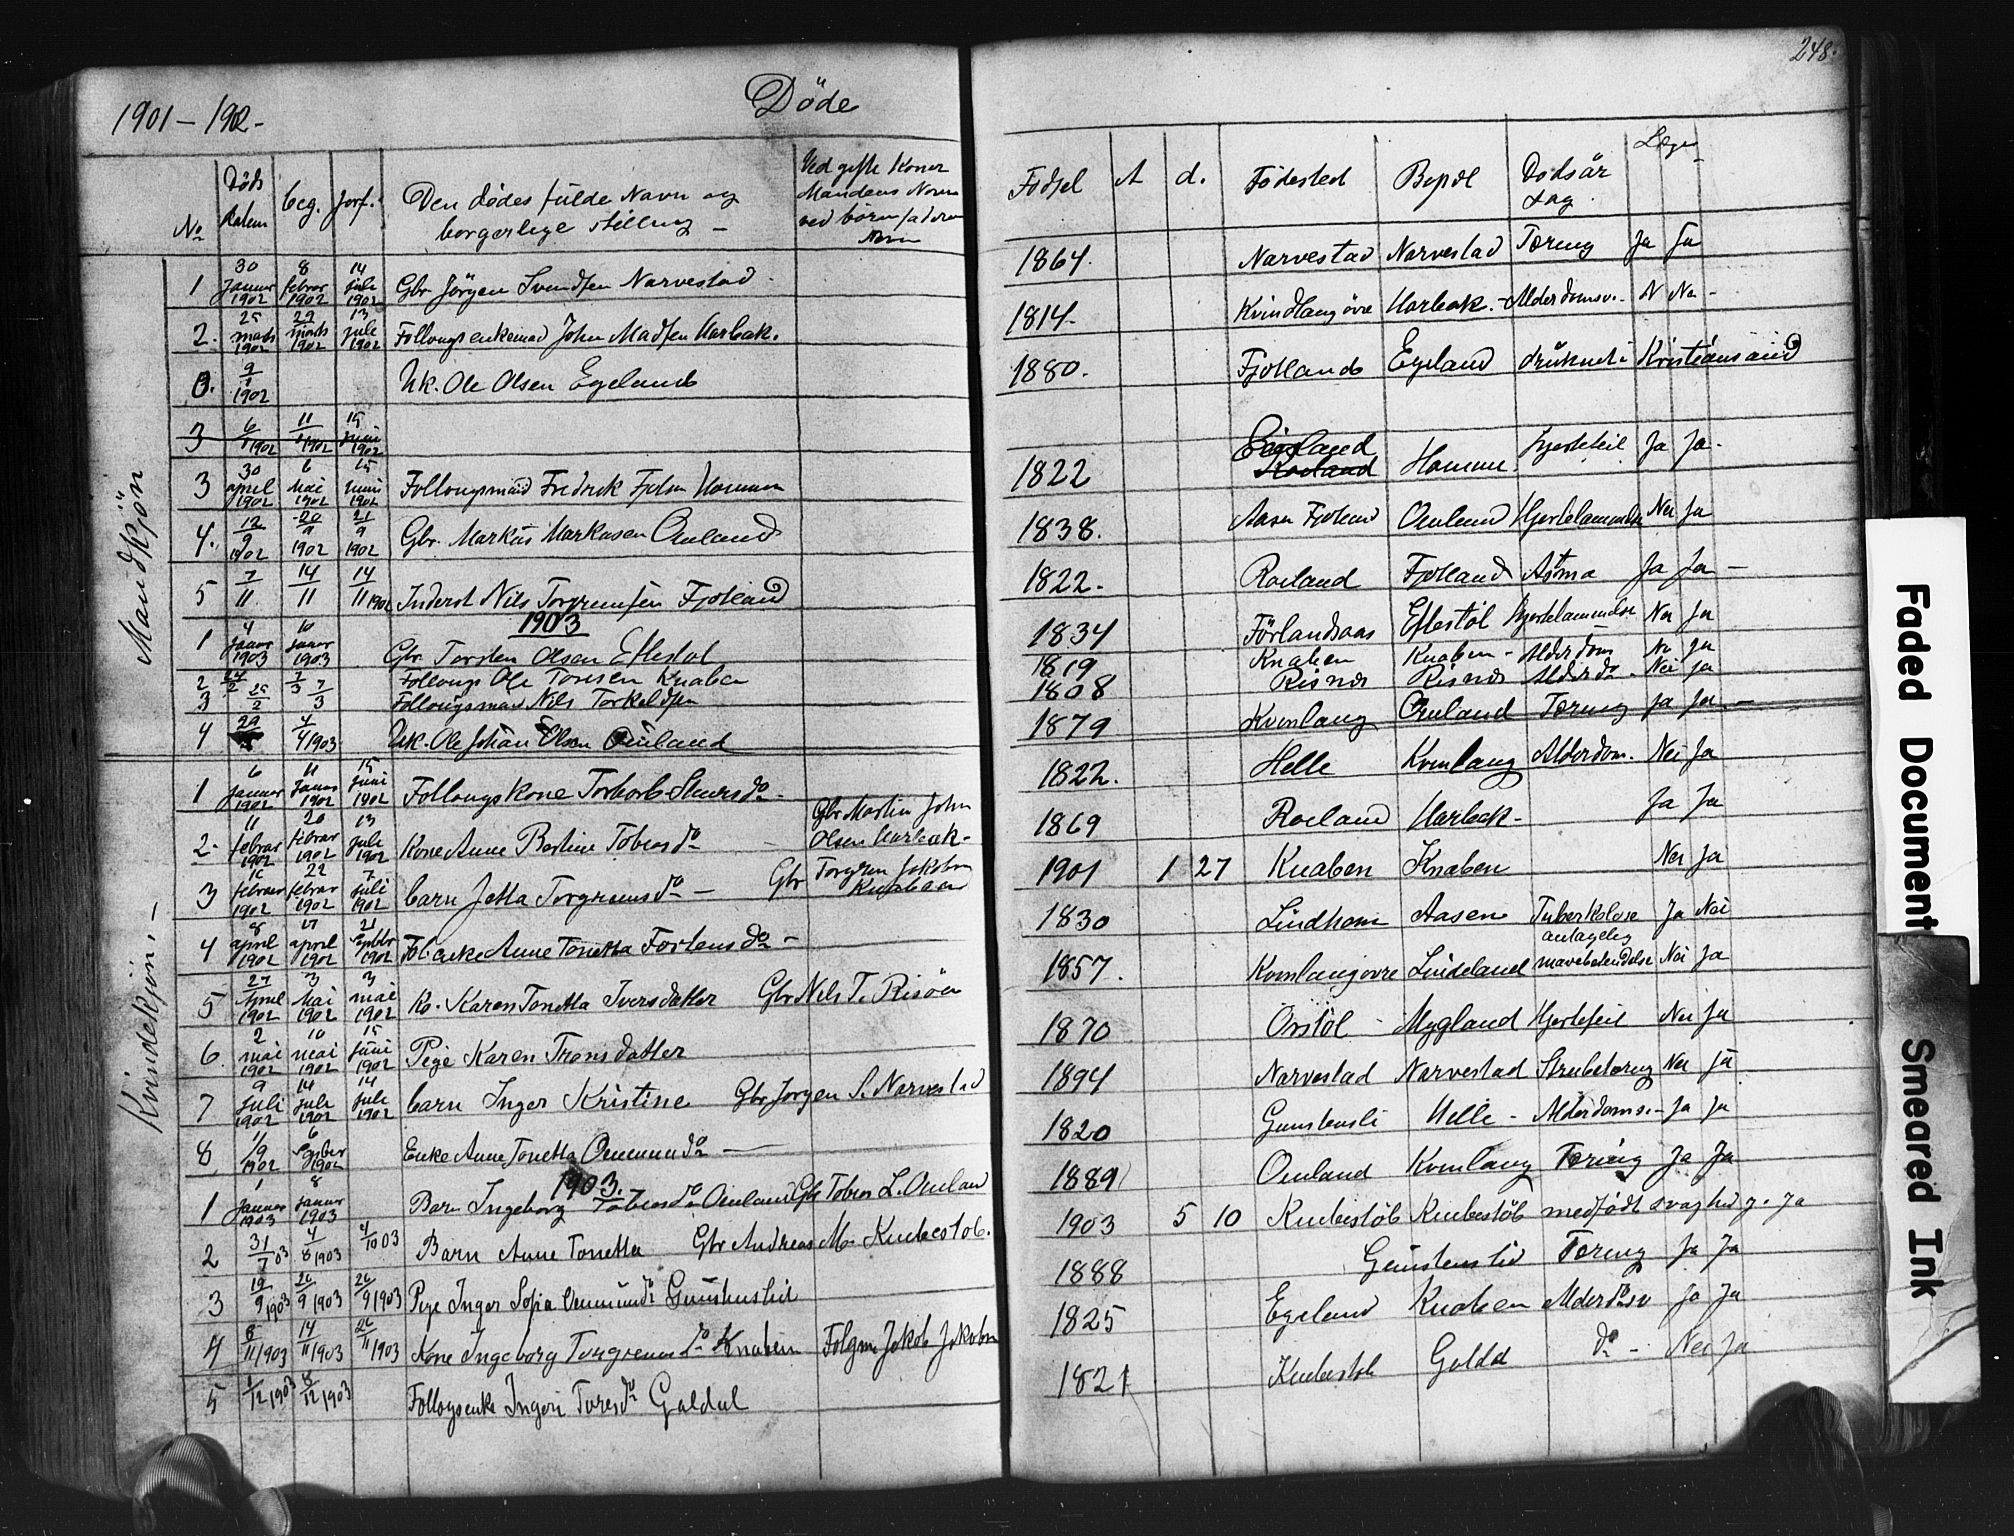 248.
1901 – 1902 –
Døde
No
Døds Datum
beg.
jorf.
Den dødes fulde Navn og borgerlige stilling –
Ved gifte Koner Mandens Navn ved børn faderen Navn
Fødsel
A
d.
Fødested
Bopæl
Dødsårsag
Læge
Mandkjön
1 30 Januar 1902 8 febrar 1902 14 juli 1902 Gbr Jörgen Svendsen Narvestad 1864. Narvestad Narvestad Tæring Ja Ja
2. 25 marts 1902 29 marts 1902 13 juli 1902 Follougsenkemad John Madsen Harbak. 1814. Kvindlangövre Harbak. – Alderdomsv. – N Na –
0. 9 1902 Uk. Ole Olsen Egeland 1880. Fjotland Egeland druknet i Kristiansand
3 6 1902 11 1902 15 juni 1902
3 30 april 1902 6 Mai 1902 15 juni 1902 Follougsmand Fredrik Homme 1822 Egeland Roeland Homme Hjertefeil Ja Ja.
4. 12/9 1902 20/9 1902 21/9 1902 Gbr. Markus Markusen Omland 1838. Aasen Fjotland Omland Hjertelammelse Nei Ja
5 7/11 14/11 14/11 1902 Inderst Nils Torgrimsen Fjotland 1822. Roeland Fjotland Astma Ja Ja –
1903
1 4 Januar 1903 10 Januar 1903 Gbr Torsten Olsen Eftestöl 1834 Förlandsaas Eftestöl Hjertelammelse Nei Ja
2 24/2 7/3 Follougs Ole Tonesen Knaben 1819 Knaben Knaben – Alderdom Ne Ja
3 29/2 7/3 Follougsman Nils Torkeldsen 1808 Risnes Risnes Alderdo. Nei Ja
4 29 4/4 1903 Uk. Ole Johan Olsen Omland 1879 Kvinlaug Omland Tæring Ja Ja –
Kvindekjön. –
1 6 Januar 1902 11 Januar 1902 15 Juni 1902 Follougskone Torborb do – 1822. Helle Kvinlaug Alderdom. Nei Ja
2. 11 febrar 1902 20 febrar 1902 13 juli 1902 Kone Anne Bertine Tobias do – Gbr Martin John Olsen Harbak – 1869 Roeland Harbak – Ja Ja
3 16 februar 1902 22 febrar 1902 7 Juli 1902 barn Jetta Torgrims do – Gbr Torgrim Jakobsen Knaben 1901 1 27 Knaben Knaben Nei Ja
4 8 april 1902 17 april 1902 21 Septbr 1902 Fol. enke Anne Tonetta Tostens do – 1830 Lindhom Aasen Tuberkelose antagelig Ja Nei
5 27 April 1902 3 Mai 1902 3 mai 1902 Ko. Karen Tonetta Iversdatter Gbr Nils T. Risöen 1857. Kvinlangovre Lindeland mavebetendelse Nei Ja
6. 2 mai 1902 10 mai 1902 15 Juni 1902 Pige Karen Tronsdatter 1870 Orstöl – Mygland Hjertefeil Nei Ja
7 9 Juli 1902 14 Juli 1902 14 Juli 1902 barn Inger Kristine Gbr Jorgen S. Narvestad 1894 Narvestad Narvestad Strubetæring Nei Ja
8 1/9 1902 6 Septber 1902 Enke Anne Tonetta Ommund do – 1820 Gunstensli Helle – Alderdoms. – Ja Ja
1903.
1 1 Januar 1903 8 Januar 1903 Barn Ingeborg Tobias do Omland Gbr Tobias L. Omland 1889 Omland Kvinlaug Tæring Ja Ja
2 31/7 03 4/8 1903 4/10 03 Barn Anne Tonetta Gbr Andreas M. Knibestöl. 1903 5 10 Knibestöl Knibestöl medfödt svaghed J. Ja
3 19/9 1903 26/9 1903 26/9 1903 Pige Inger Sofia Ommunds do Gunstenslid 1888 Gunstenslid Tæring Ja Ja
4 6/11 1903 14/11 1903 26/11 1903 Kone Ingeborg Torgrims do Knaben Folgm Jakob Jakobsen 1825 Egeland Knaben Alderdsv Ja Ja
5 1/12 1903 8/12 1903 Follougsenke Ingeri Tores do Galdal 1821 Knibestöl Galda do – Nei Ja
Faded Document
Smeared Ink